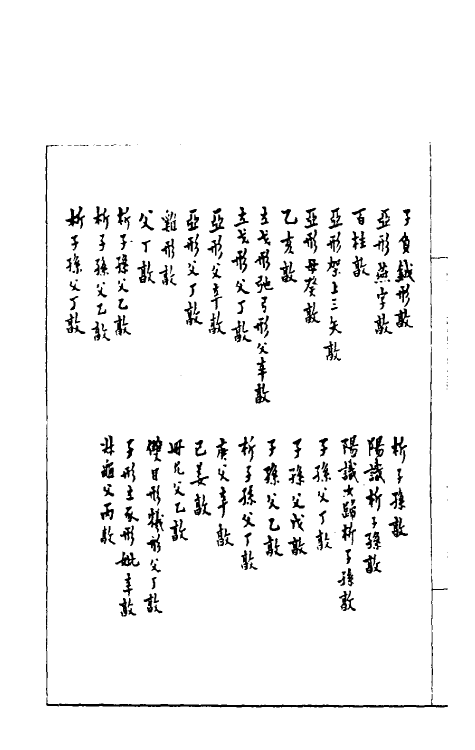 子負鉞形敦
亞形燕字敦
百柱敦
亞形架上三矢敦
亞形母癸敦
乙亥敦
立戈形弛弓形父辛敦
立戈形父丁敦
亞形父辛敦
亞形父丁敦
雞形敦
父丁敦
析子孫父乙敦
析子孫父乙敦
析子孫父丁敦
析子孫敦
陽識析子孫敦
陽識大蹄析子孫敦
子孫父丁敦
子孫父戊敦
子孫父乙敦
析子孫父丁敦
庚父辛敦
己姜敦
父乙敦
雙目形犧形父丁敦
子形立豕形妣辛敦
父丙敦